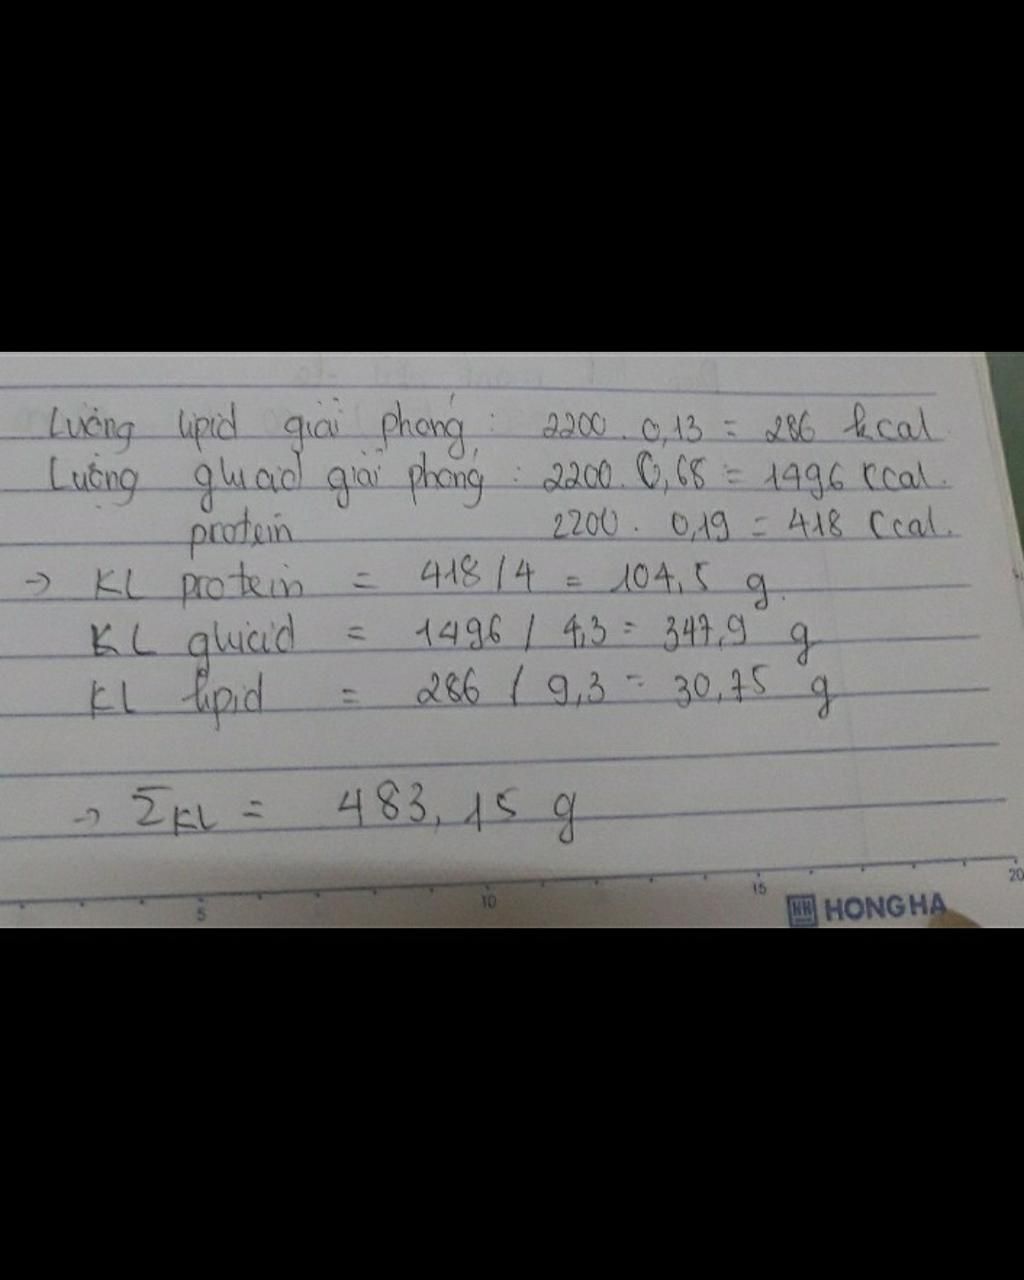 Lượng lipid giải phóng : 2200 . 0,13 = 286 kcal
Lượng glucid giải phóng : 2200 . 0,68 = 1496 kcal.
protein 2200 . 0,19 = 418 kcal.
→ KL protein = 418 / 4 = 104,5 g.
KL glucid = 1496 / 4,3 = 347,9 g
KL lipid = 286 / 9,3 = 30,75 g
→ ΣKL = 483,15 g
5 10 15 20
HH HONG HA